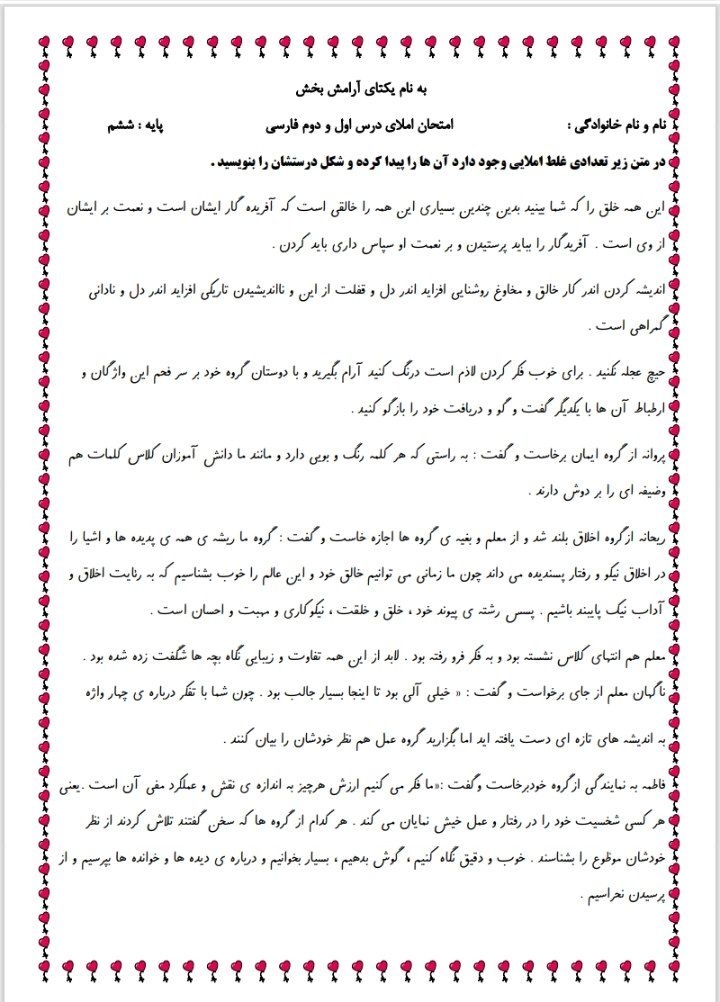 به نام یکتای آرامش بخش
نام و نام خانوادگی : امتحان املای درس اول و دوم فارسی پایه : ششم
در متن زیر تعدادی غلط املایی وجود دارد آن ها را پیدا کرده و شکل درستشان را بنویسید .
این همه خلق را که شما بینید بدین چندین بسیاری این همه را خالقی است که آفریده گار ایشان است و نعمت بر ایشان
از وی است . آفریدگار را بباید پرستیدن و بر نعمت او سپاس داری باید کردن .
اندیشه کردن اندر کار خالق و مخاوغ روشنایی افزاید اندر دل و قفلت از این و نااندیشیدن تاریکی افزاید اندر دل و نادانی
گمراهی است .
حیچ عجله نکنید . برای خوب فکر کردن لاذم است درنگ کنید آرام بگیرید و با دوستان گروه خود بر سر فحم این واژگان و
ارطباط آن ها با یکدیگر گفت و گو و دریافت خود را بازگو کنید .
پروانه از گروه ایمان برخاست و گفت : به راستی که هر کلمه رنگ و بویی دارد و مانند ما دانش آموزان کلاس کلمات هم
وضیفه ای را بر دوش دارند .
ریحانه ازگروه اخلاق بلند شد و از معلم و بغیه ی گروه ها اجازه خاست و گفت : گروه ما ریشه ی همه ی پدیده ها و اشیا را
در اخلاق نیکو و رفتار پسندیده می داند چون ما زمانی می توانیم خالق خود و این عالم را خوب بشناسیم که به رئایت اخلاق و
آداب نیک پایبند باشیم . پسس رشته ی پیوند خود ، خلق و خلقت ، نیکوکاری و مهبت و احسان است .
معلم هم انتهای کلاس نشسته بود و به فکر فرو رفته بود . لابد از این همه تفاوت و زیبایی نگاه بچه ها شگفت زده شده بود .
ناگهان معلم از جای برخواست و گفت : « خیلی آلی بود تا اینجا بسیار جالب بود . چون شما با تفکر درباره ی چهار واژه
به اندیشه های تازه ای دست یافته اید اما بگزارید گروه عمل هم نظر خودشان را بیان کنند .
فاطمه به نمایندگی ازگروه خودبرخاست وگفت :«ما فکر می کنیم ارزش هرچیز به اندازه ی نقش و عملکرد مفی آن است .یعنی
هر کسی شخسیت خود را در رفتار و عمل خیش نمایان می کند . هر کدام از گروه ها که سخن گفتند تلاش کردند از نظر
خودشان موظوع را بشناسند . خوب و دقیق نگاه کنیم ، گوش بدهیم ، بسیار بخوانیم و درباره ی دیده ها و خوانده ها بپرسیم و از
پرسیدن نحراسیم .